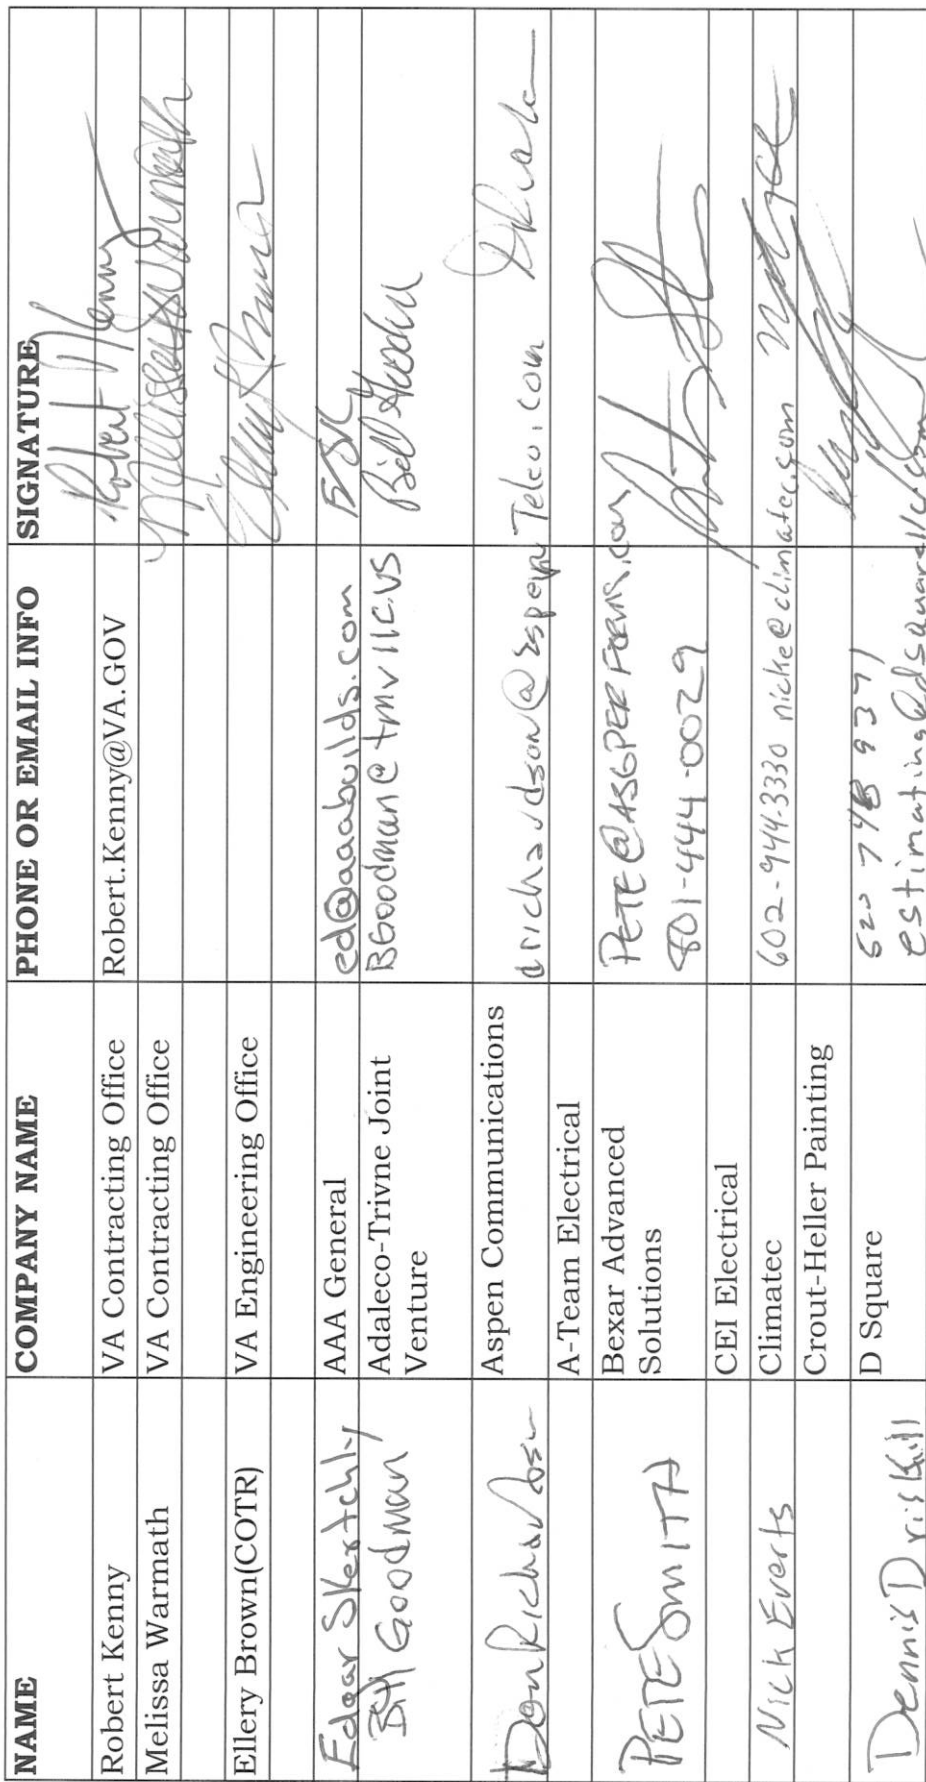 NAME COMPANY NAME PHONE OR EMAIL INFO SIGNATURE
Robert Kenny VA Contracting Office Robert.Kenny@VA.GOV Robert Kenny
Melissa Warmath VA Contracting Office Melissa Warmath
Ellery Brown(COTR) VA Engineering Office
Edgar Skertchly AAA General ed@aaabuilds.com ESK
Bill Goodman Adaleco-Trivne Joint BGoodman@tmvllc.us Bill Goodman
Venture
Don Richardson Aspen Communications drichardson@aspenTelco.com
A-Team Electrical
PETE SMITH Bexar Advanced PETE@ASGPERFORMS.com
Solutions 801-444-0029
CEI Electrical
Nick Everts Climatec 602-944-3330 nicke@climatec.com
Crout-Heller Painting
Dennis Driskill D Square 520 748 9371
estimating@dsquarellc.com